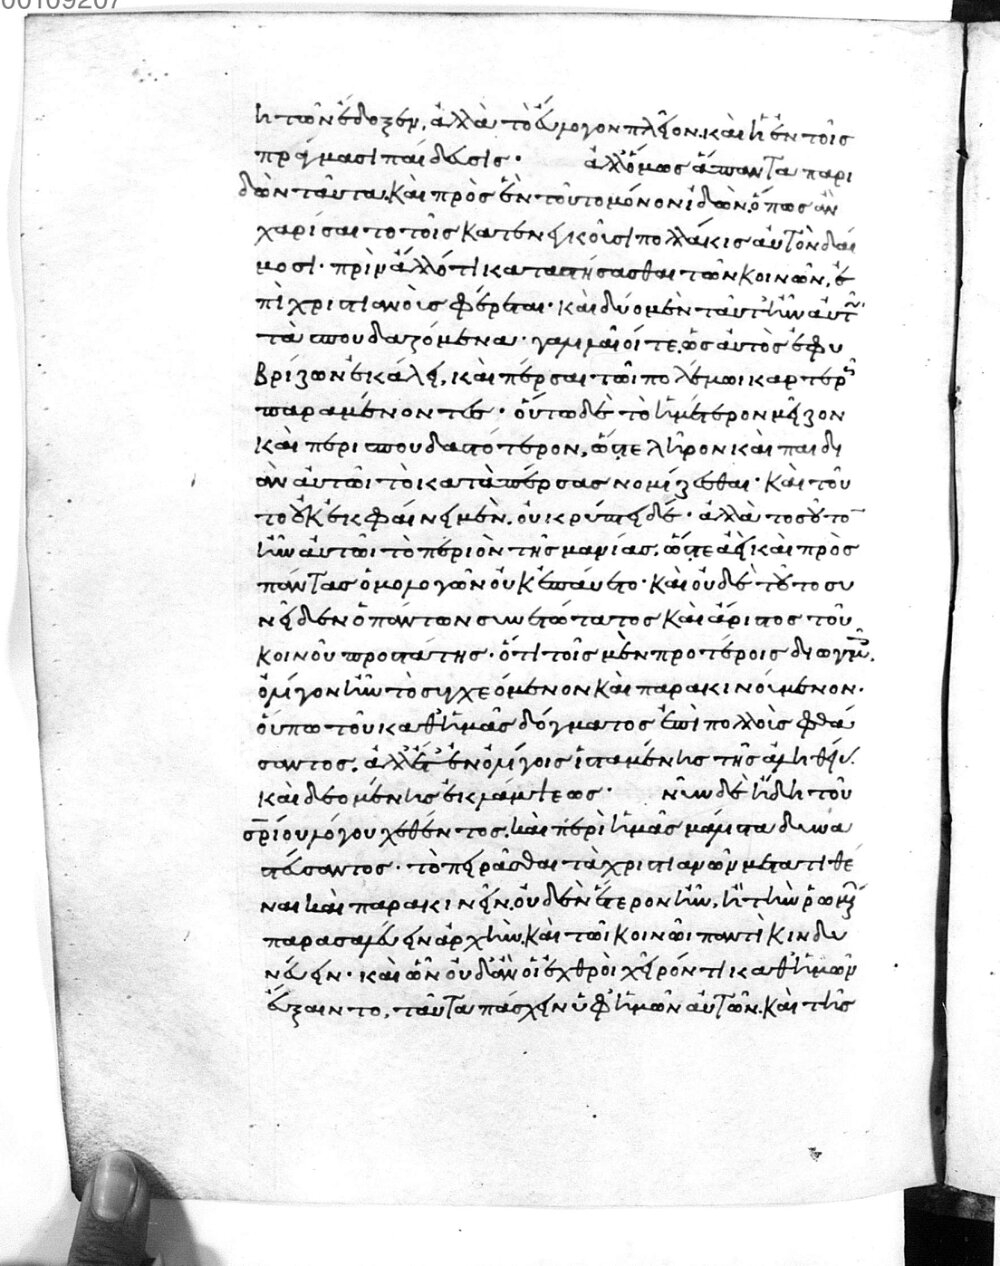 00109207
ἡ τῶν ἔδοξεν, ἀλλὰ τὸ εὔλογον πλέον. καὶ ἡ ἐν τοῖς
πράγμασι παίδευσις· ἀλλ' ὅμως ἅπαντα παρι
δὼν ταῦτα. καὶ πρὸς ἓν τοῦτο μόνον ἰδὼν. ὅπως ἂν
χαρίσαιτο τοῖς κατεσχηκόσι πολλάκις αὐτὸν δαί
μοσι· πρὶν ἄλλό τι καταστήσασθαι τῶν κοινῶν, ἐ
πὶ χριστιανοὺς φέρεται· καὶ δύο μὲν ταύτην αὐτῶ
τὰ σπουδαζόμενα· γαλιλαῖοί τε, ὡς αὐτὸς ἐφυ
βρίζων ἐκάλει, καὶ πέρσαι τῶι πολέμωι καρτερῶς
παραμένοντες· οὕτω δὲ τὸ ἡμέτερον μεῖζον
καὶ περισπουδαστότερον, ὥστε λῆρον καὶ παιδι
ὰν αὐτῶι τὸ κατὰ πέρσας νομίζεσθαι· καὶ τοῦ
το οὐκ ἐκφαίνει μὲν, οὐ κρύπτει δέ· ἀλλὰ τοσοῦτο
ἦν αὐτῶι τὸ περιὸν τῆς μανίας, ὥστε ἀεὶ καὶ πρὸς
πάντας ὁμολογῶν οὐκ ἐπαύετο· καὶ οὐδὲ τοῦτο συ
νεῖδεν ὁ πάντων συνετώτατος καὶ ἄριστος τοῦ
κοινοῦ προστάτης· ὅτι τοῖς μὲν προτέροις διωγμοῖς.
ὀλίγον ἦν τὸ συγχεόμενον καὶ παρακινούμενον·
οὔπω τοῦ καθ' ἡμᾶς δόγματος ἐπὶ πολλοὺς φθά
σαντος, ἀλλ' ἔτ' ἐν ὀλίγοις ἱσταμένης τῆς ἀληθείας.
καὶ δεομένης ἐκλάμψεως· νῦν δὲ ἤδη τοῦ
σ̅ρίου λόγου χεθέντος, καὶ περὶ ἡμᾶς μάλιστα δυνα
στεύσαντος· τὸ πειρᾶσθαι τὰ χριστιανῶν μετατιθέ
ναι καὶ παρακινεῖν, οὐδὲν ἕτερον ἦν, ἢ τὴν ῥωμαίων
παρασαλεύειν ἀρχὴν. καὶ τῶι κοινῶι παντὶ κινδυ
νεύειν· καὶ ὧν οὐδ' ἂν οἱ ἐχθροὶ χεῖρόν τι καθ' ἡμῶν
εὔξαιντο, ταῦτα πάσχειν ὑφ' ἡμῶν αὐτῶν. καὶ τῆς